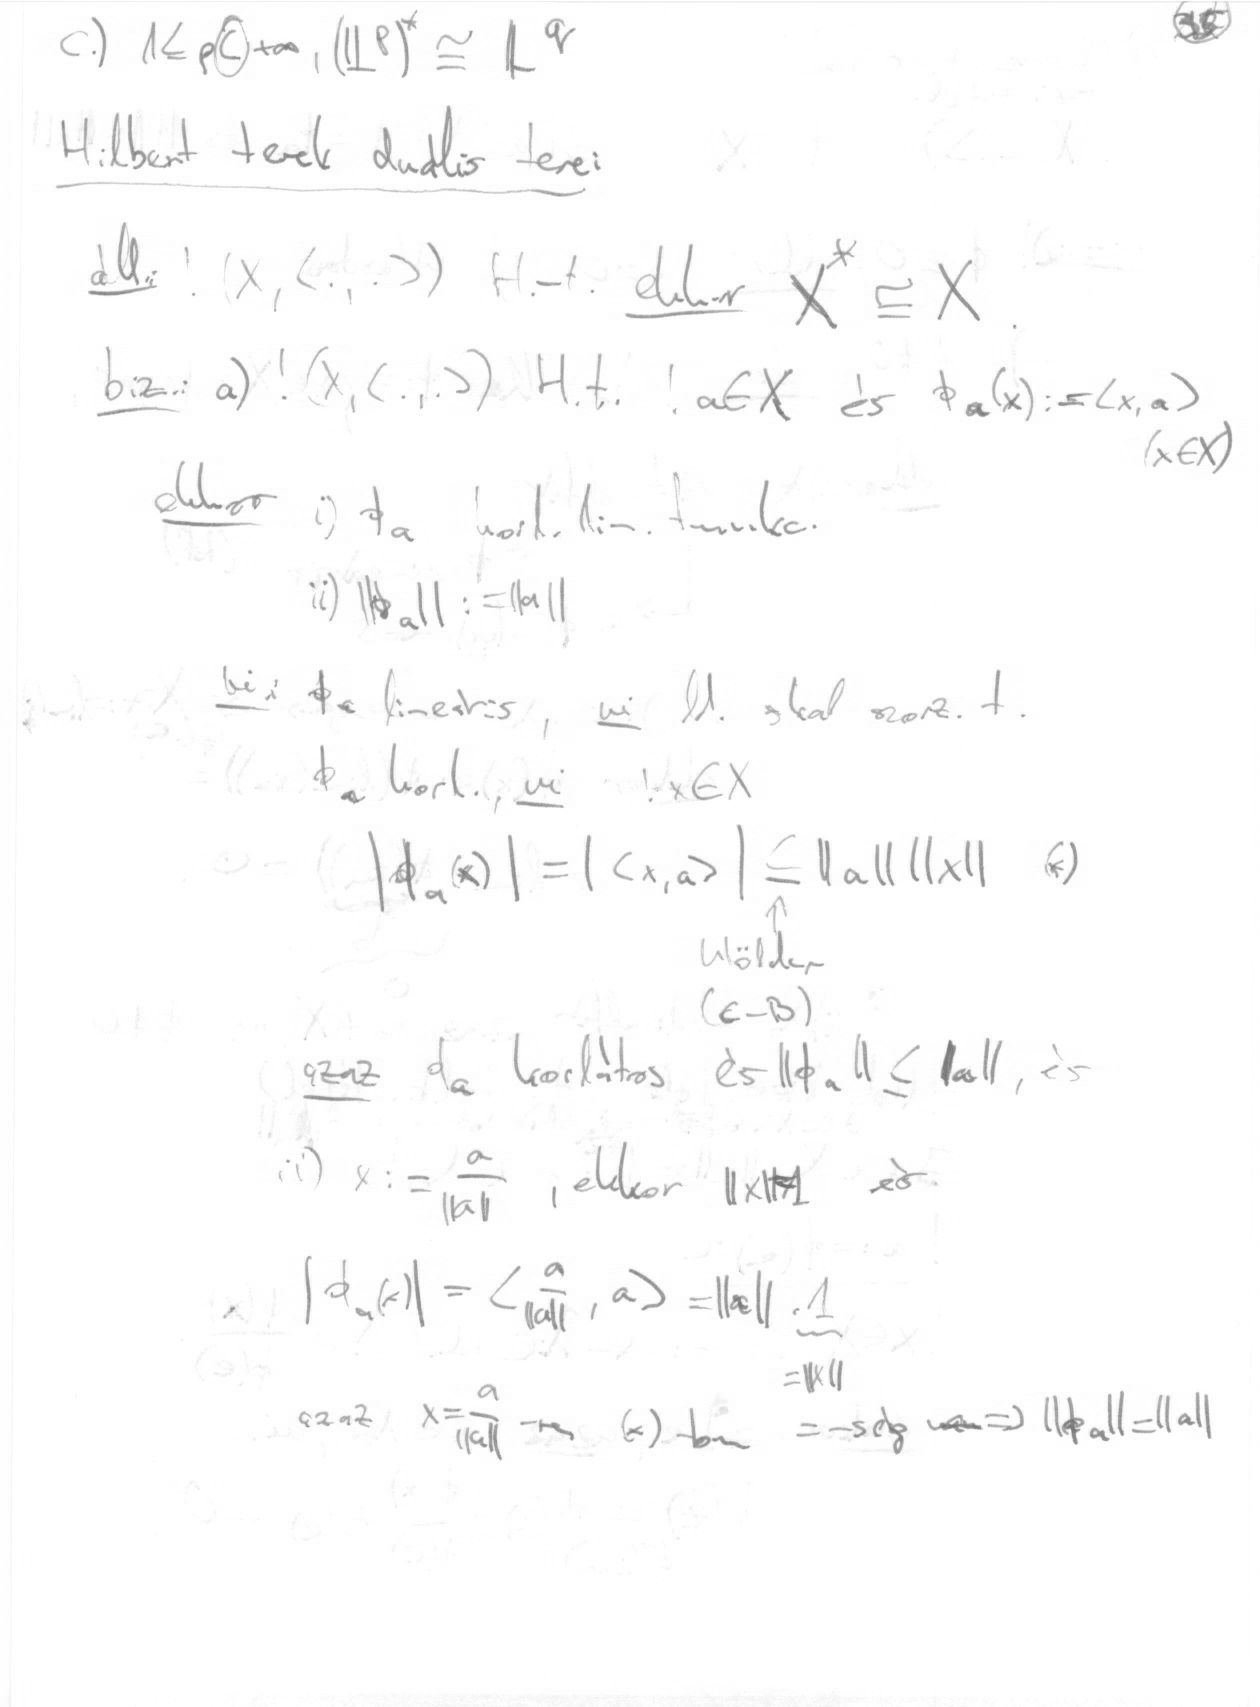 c.) 1≤ p < +∞, (𝕃^p)^* ≅ 𝕃^q
Hilbert terek duális terei
áll.: ! (X, <.,.>) H.t. ekkor X^* ≅ X.
biz.: a) ! (X, <.,.>) H.t. ! a∈X és ϕ_a(x) := <x,a>
(x∈X)
ekkor i) ϕ_a korl. lin. funkc.
ii) ||ϕ_a|| := ||a||
ui: ϕ_a lineáris, ui ld. skal szorz. t.
ϕ_a korl., ui ! x∈X
|ϕ_a(x)| = |<x,a>| ≤ ||a|| ||x|| (*)
↑
Hölder
(C-B)
azaz ϕ_a korlátos és ||ϕ_a|| ≤ ||a||, és
ii) x := a/||a||, ekkor ||x||=1 és
|ϕ_a(x)| = <a/||a||, a> = ||a|| · 1
= ||x||
azaz x = a/||a|| -ra (*) -ban = -ség van => ||ϕ_a|| = ||a||